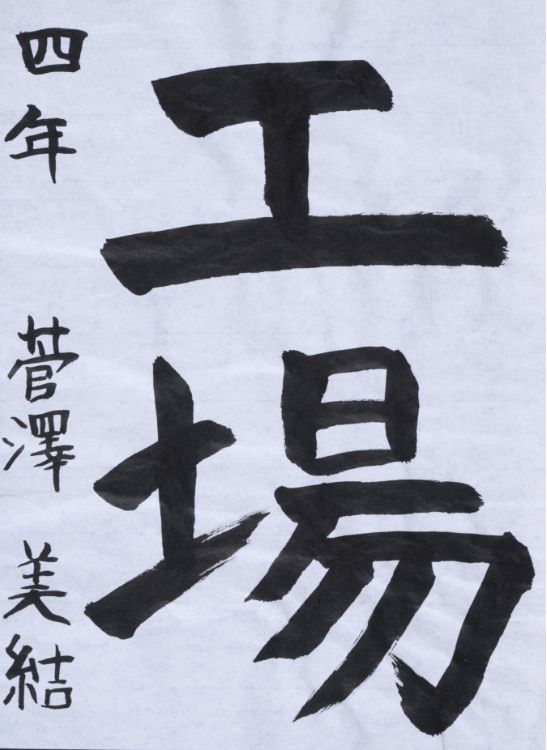 工場
四年 菅澤 美結